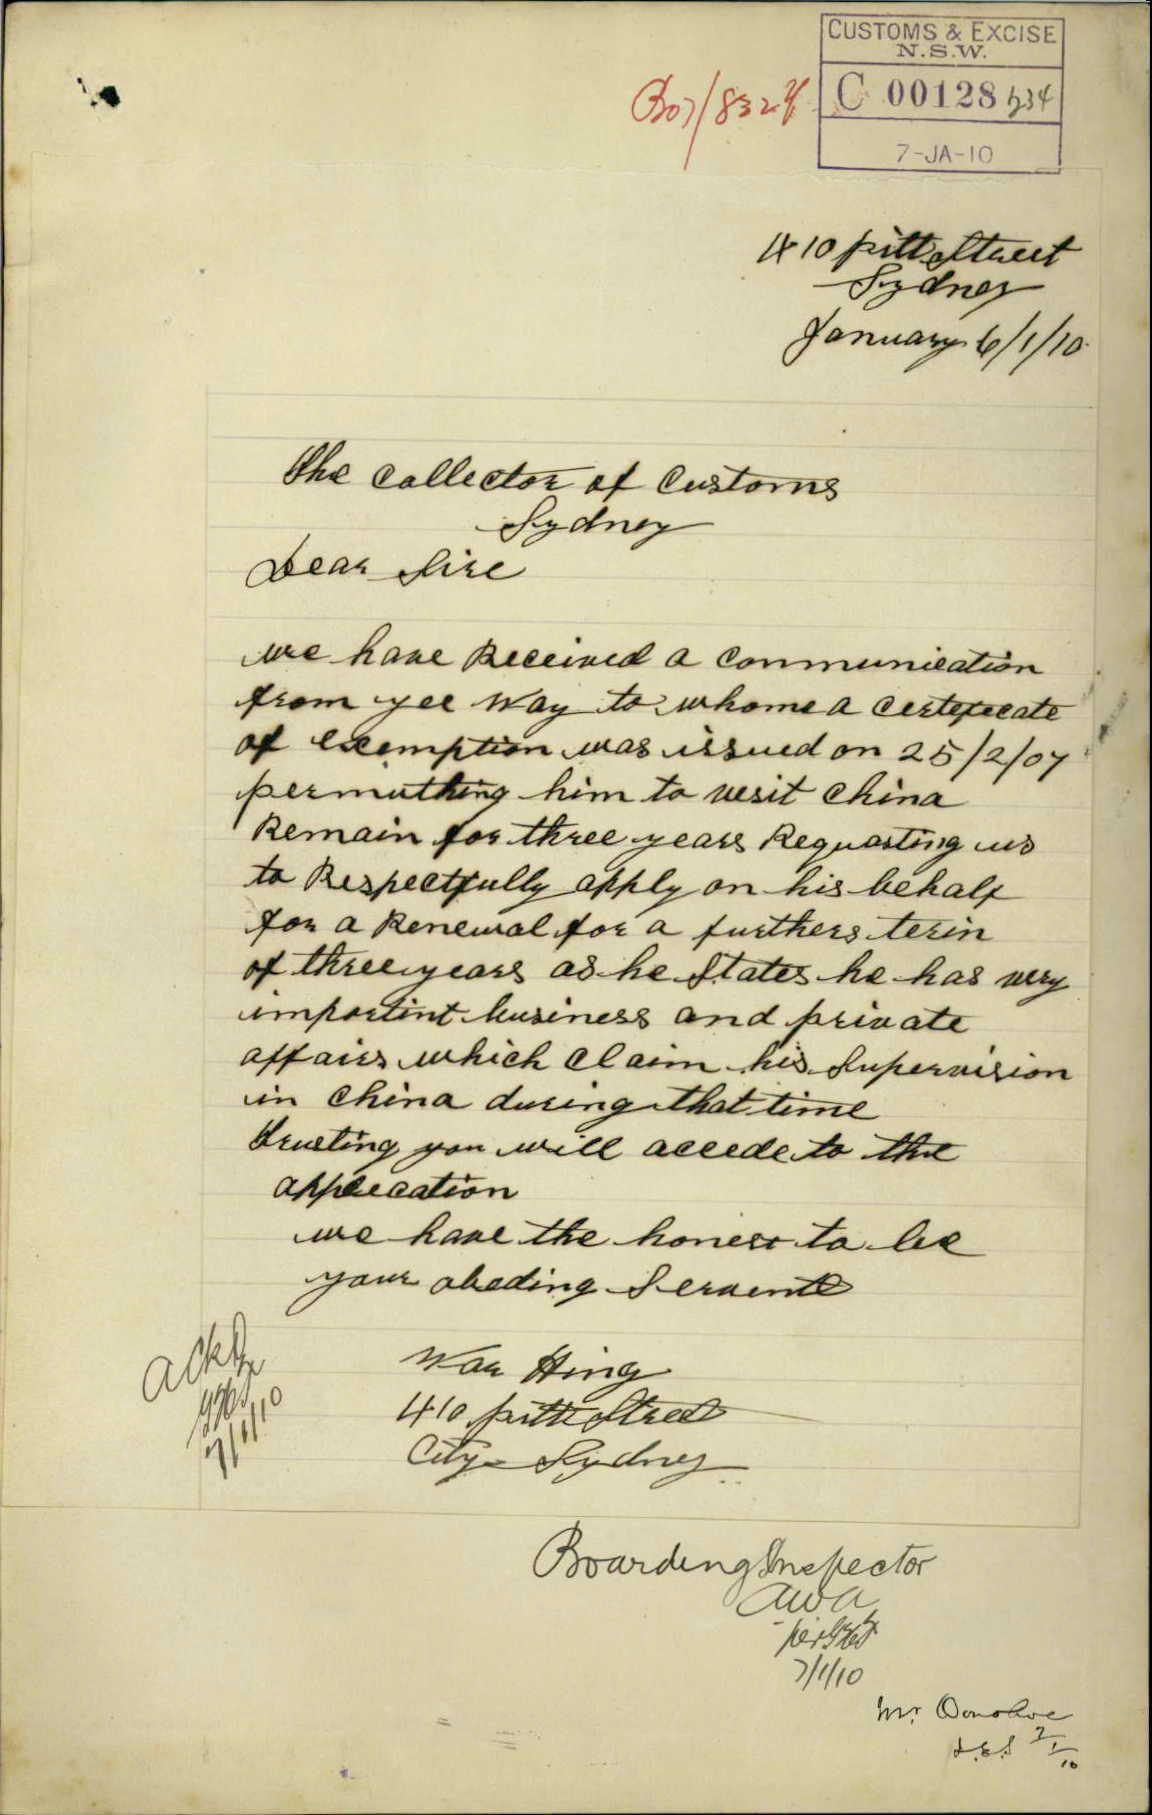 CUSTOMS & EXCISE
N.S.W.
C 00128
7-JA-10
B07/832
410 pitt Street
Sydney
January 6/1/10
The Collector of Customs
Sydney
Dear Sire
we have Received a Conmunication
from yee Way to whome a Certefecate
of Exemption was issued on 25/2/07
permuthing him to vesit China
Remain for three years Requasting us
to Respectfully apply on his behalf
for a Renewal for a furthers terin
of three years as he States he has very
importint business and private
affairs which Claim his Supervision
in China during that time
Trusting you will accede to the
applecation
we have the honest to be
your obeding Servente
War Hing
410 pitt Street
City Sydney
Ackd
7/1/10
Boarding Inspector
AWA
per
7/1/10
Mr. Donohoe